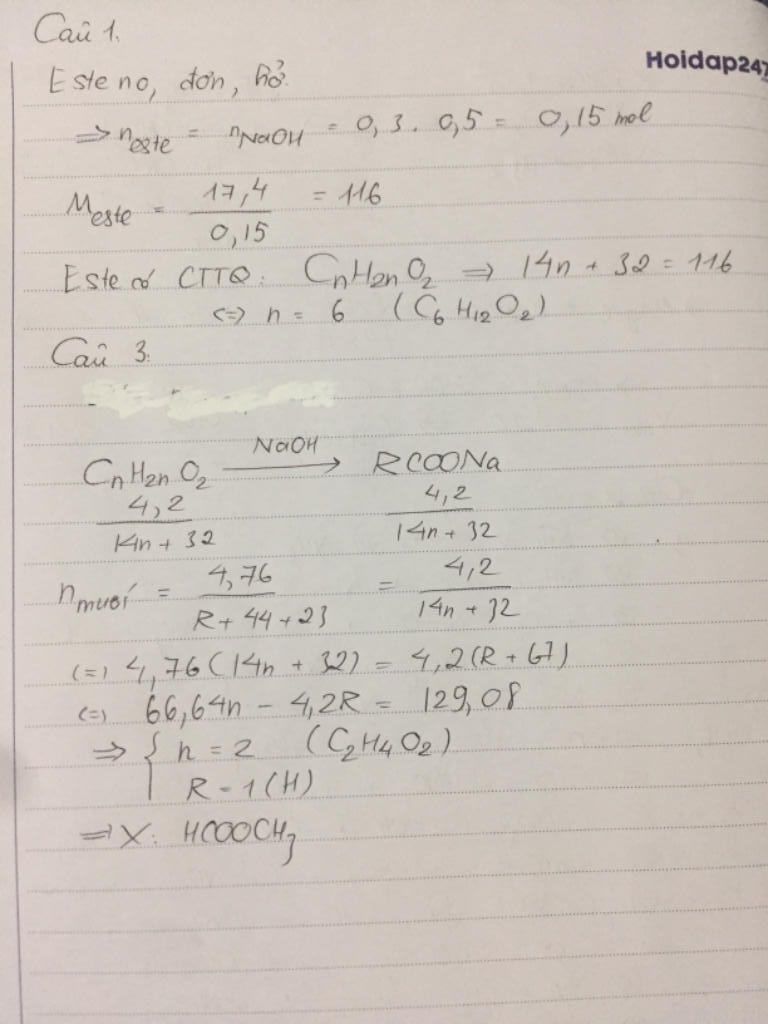 Câu 1.
Hoidap247
Este no, đơn, hở.
=> n este = nNaOH = 0,3 . 0,5 = 0,15 mol
M este = 17,4 / 0,15 = 116
Este có CTTQ: CnH2nO2 => 14n + 32 = 116
<=> n = 6 (C6H12O2)
Câu 3:
CnH2nO2 NaOH → RCOONa
4,2 / 14n + 32 4,2 / 14n + 32
n muối = 4,76 / R + 44 + 23 = 4,2 / 14n + 32
(=) 4,76(14n + 32) = 4,2(R + 67)
(=) 66,64n - 4,2R = 129,08
=> { n = 2 (C2H4O2)
R = 1 (H)
=> X: HCOOCH3